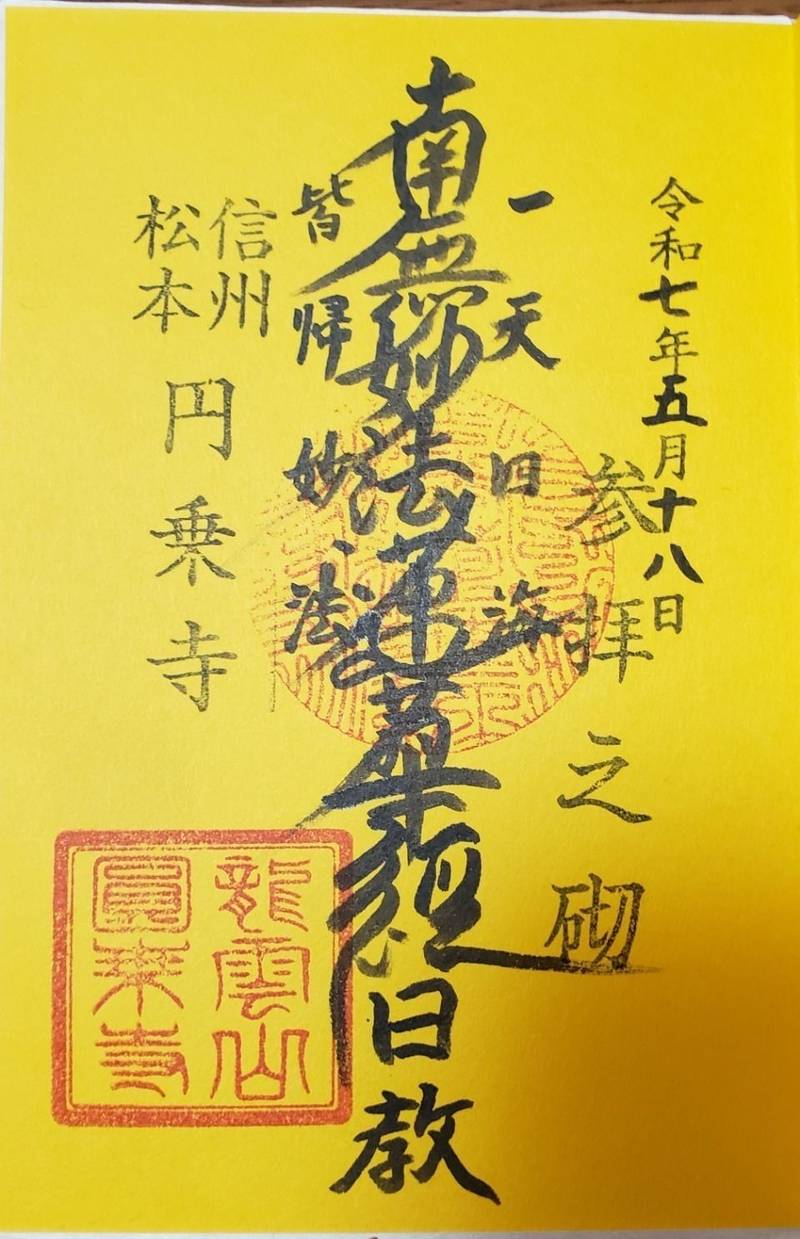 令和七年五月十八日
参拝之砌
一天四海
南無妙法蓮華経 日教
皆帰妙法
信州
松本
円乗寺
龍雲山
圓乗寺